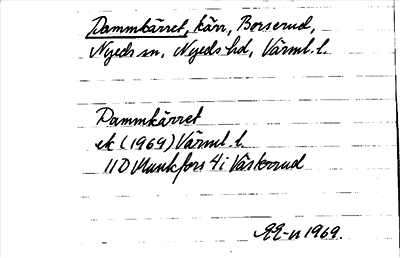 Dammkärret, kärr, Borserud,
Nyeds sn, Nyeds hd, Värml. l.
Dammkärret
ek (1969) Värml. l.
11D Munkfors 4i Västerrud
1969.